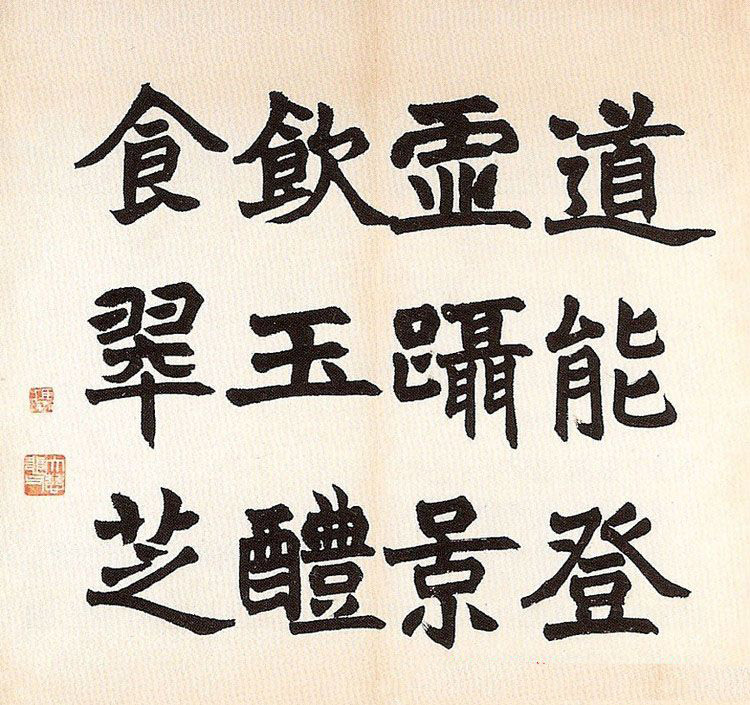 道能登
虚躡景
飲玉醴
食翠芝